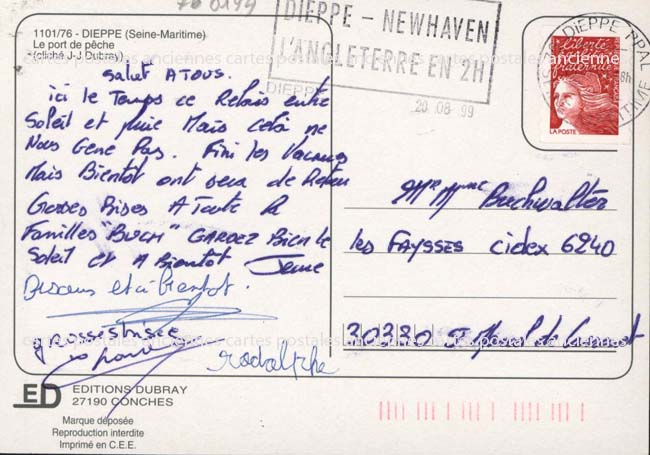 76 0199
1101/76 - DIEPPE (Seine-Maritime)
Le port de pêche
(cliché J-J Dubray)
DIEPPE - NEWHAVEN
L'ANGLETERRE EN 2H
DIEPPE
20 08 99
DIEPPE PPAL
liberté
égalité
fraternité
LA POSTE
Salut A TOUS.
ici le Temps ce Relais entre
Soleil et pluie Mais cela ne
Nous Gene Pas. Fini les Vacances
Mais Bientot ont sera de Retour
Grosses Bises A Toute la
Familles "BUCH" GARDEZ Bien le
Soleil et A Bientot
Bisous et à bientot.
grosses bisée
rodolphe
Mr Mme Buchwalter
les FAYSSES Cidex 6240
30330
cartes postales anciennes cartes postales anciennes cartes postales anciennes
ED EDITIONS DUBRAY
27190 CONCHES
Marque déposée
Reproduction interdite
Imprimé en C.E.E.